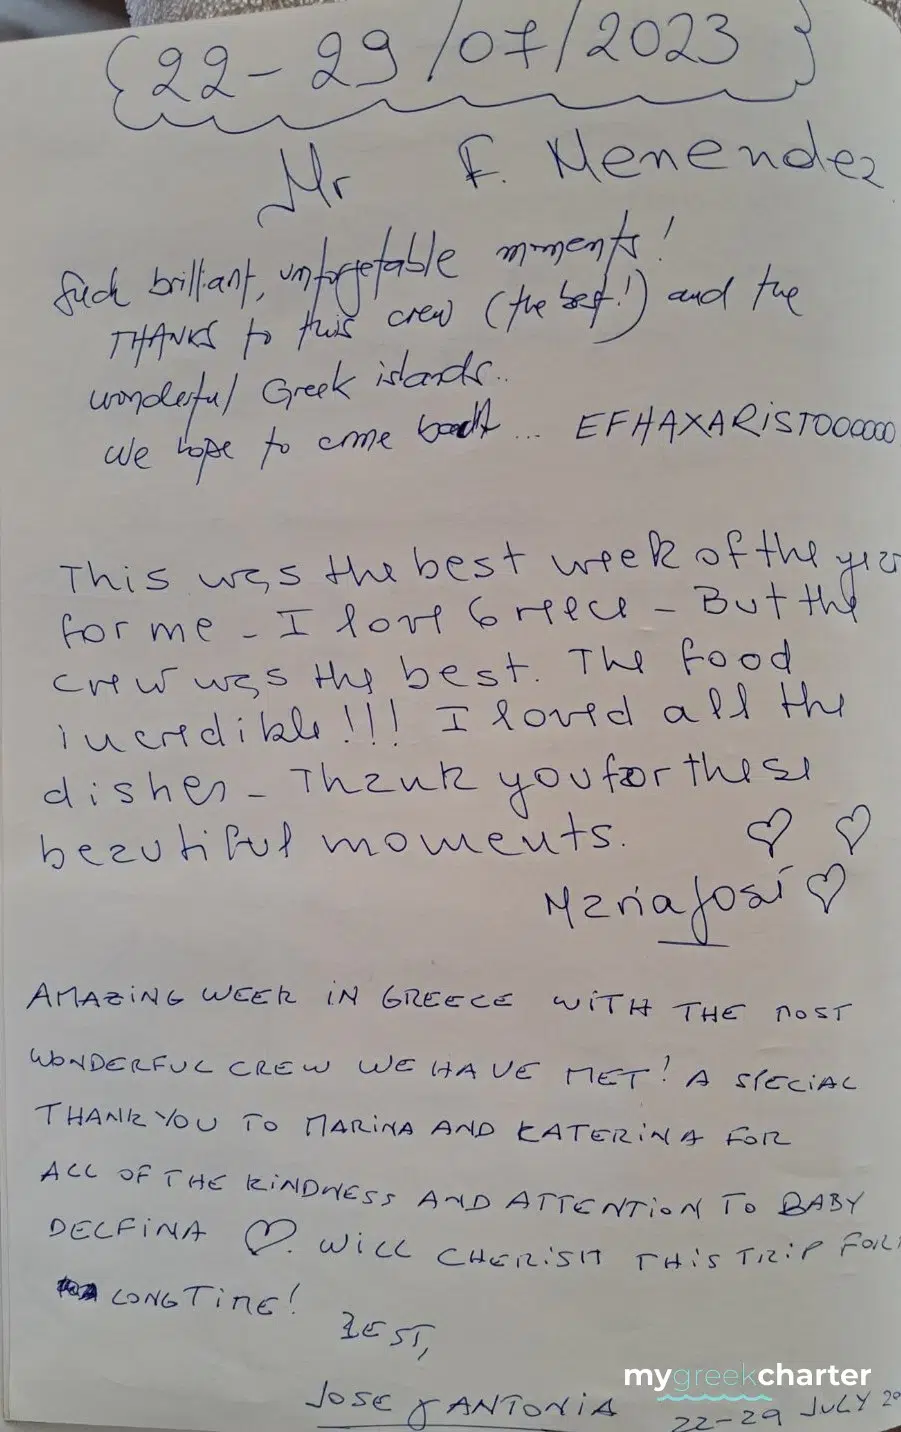 {22-29/07/2023}
Mr F. Menendez
Such brillant, unforgetable moments!
THANKS to this crew (the best!) and the
wonderful Greek islands..
We hope to come back ... EFHAXARiSTOOOOOO
This was the best week of the year
for me - I love Greece - But the
crew was the best. The food
incredible!!! I loved all the
dishes - Thank you for these
beautiful moments. ♡ ♡
Maria José ♡
AMAZiNG WEEK iN GREECE WiTH THE MOST
WONDERFUL CREW WE HAVE MET! A SPECiAL
THANK YOU TO MARiNA AND KATERiNA FOR
ALL OF THE KiNDNESS AND ATTENTiON TO BABY
DELFiNA ♡. WiLL CHERiSH THiS TRiP FOR
LONG TiME!
BEST,
JOSE y ANTONiA 22-29 JULY 20
mygreekcharter